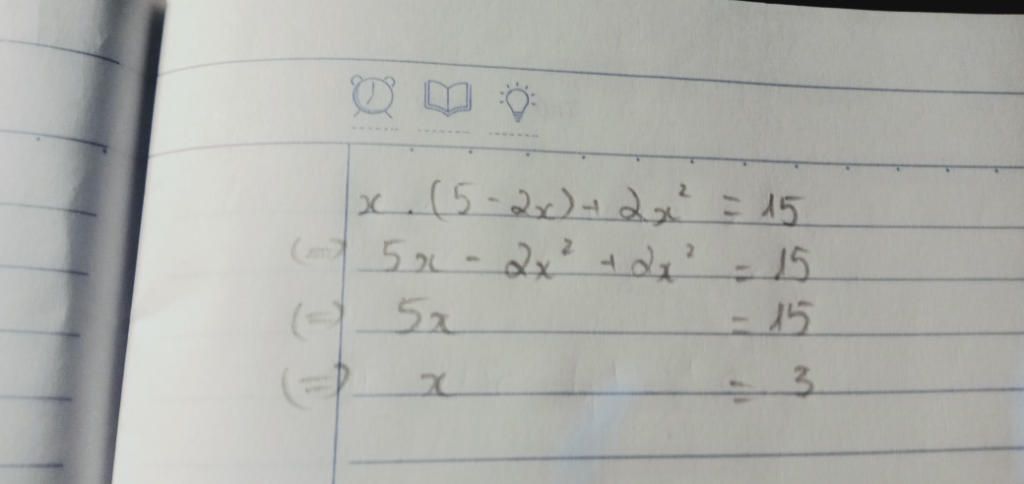 x . (5 - 2x) + 2x² = 15
(=) 5x - 2x² + 2x² = 15
(=) 5x = 15
(=) x = 3